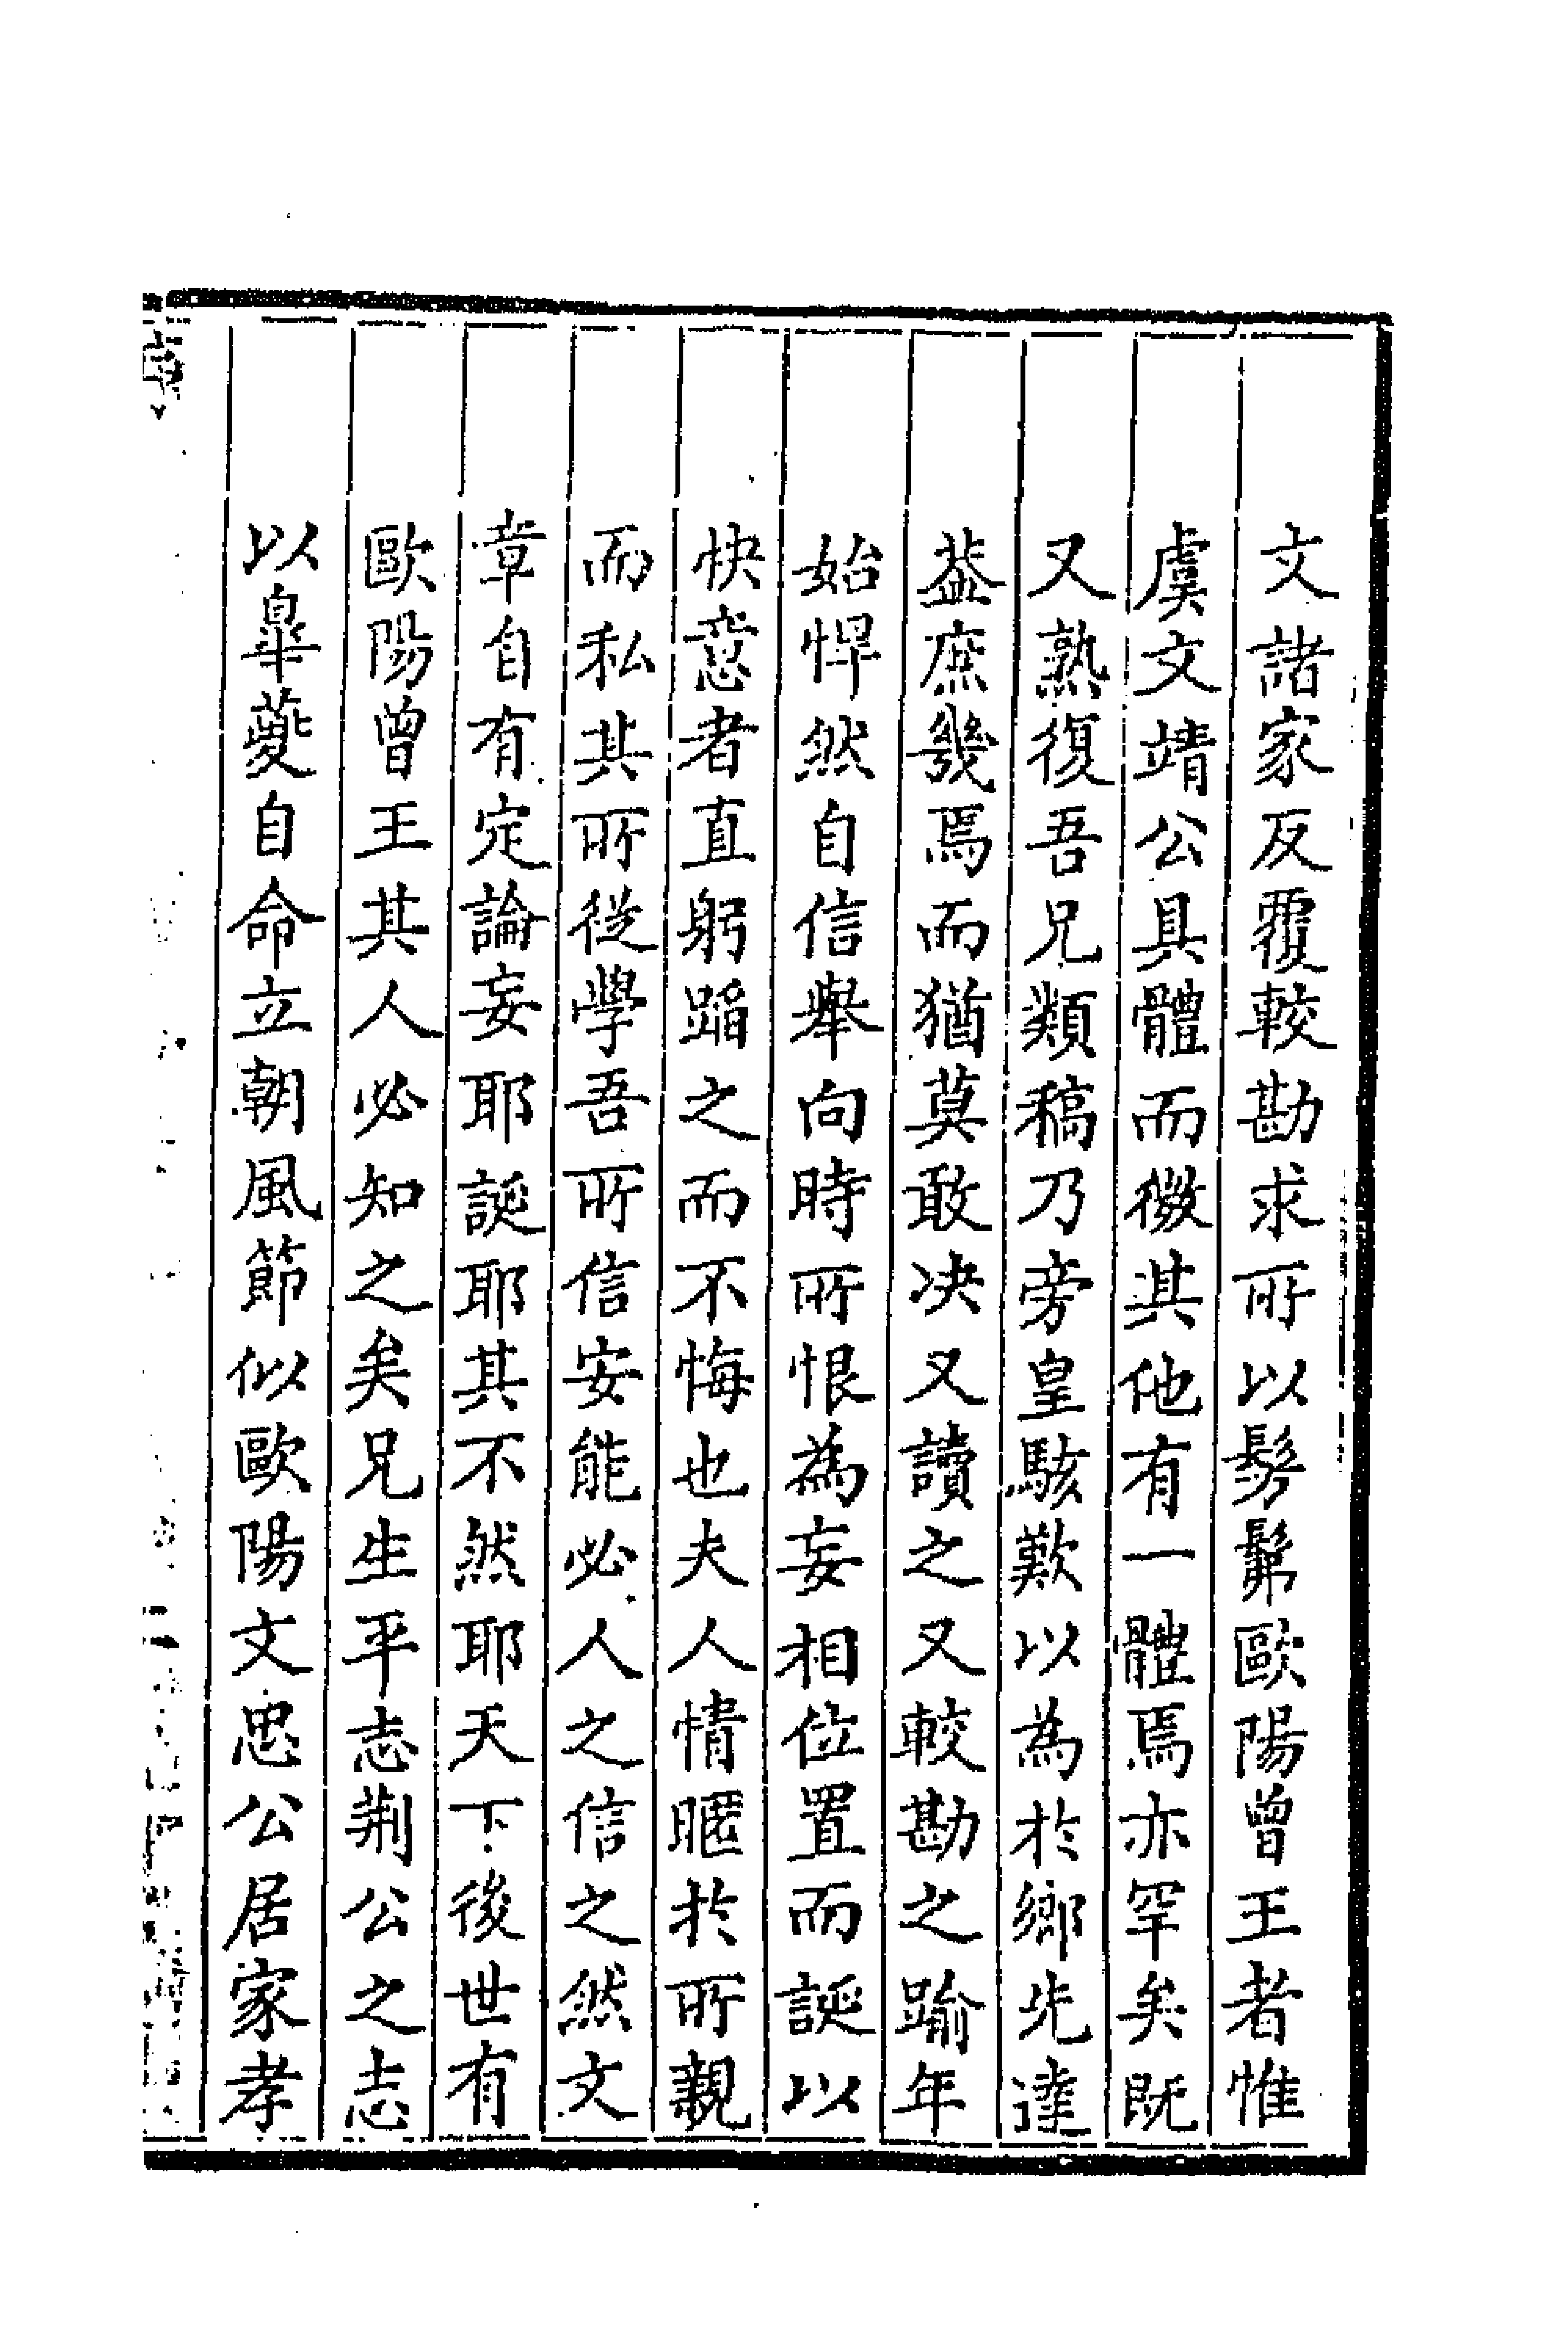 文諸家反覆較勘求所以髣髴歐陽曾王者惟
虞文靖公具體而微其他有一體焉亦罕矣既
又熟復吾兄類稿乃旁皇駭歎以為於鄉先達
葢庶幾焉而猶莫敢决又讀之又較勘之踰年
始悍然自信舉向時所恨為妄相位置而誕以
快意者直躬蹈之而不悔也夫人情暱於所親
而私其所從學吾所信安能必人之信之然文
章自有定論妄耶誕耶其不然耶天下後世有
歐陽曾王其人必知之矣兄生平志荆公之志
以皐夔自命立朝風節似歐陽文忠公居家孝